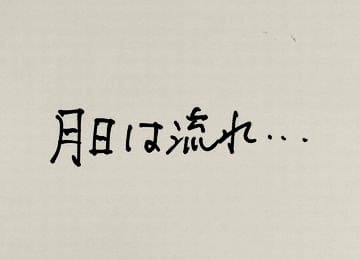 月日は流れ...